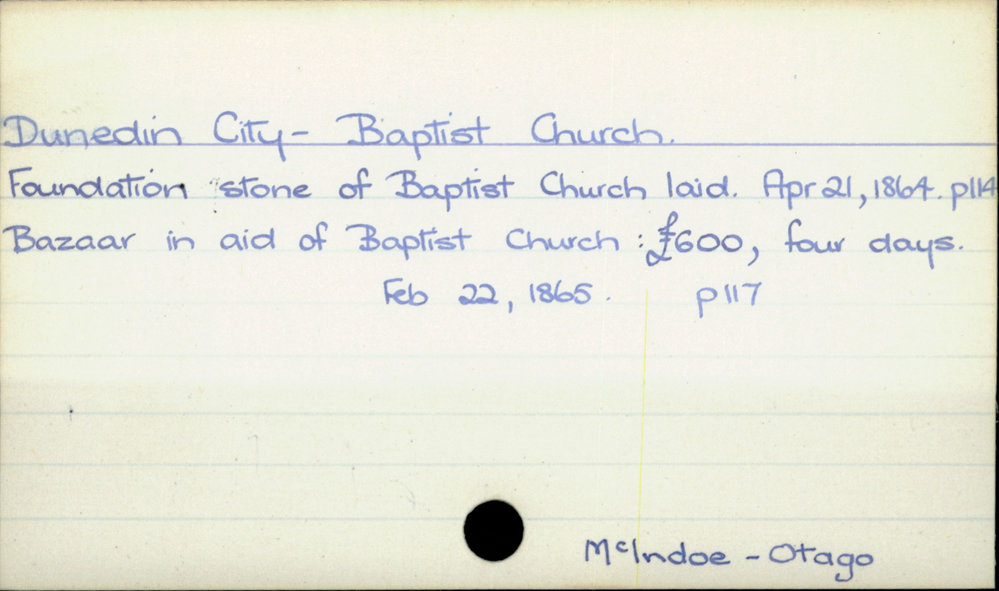 Dunedin City - Baptist Church.
Foundation stone of Baptist Church laid. Apr 21, 1864. p114
Bazaar in aid of Baptist Church : £600, four days.
Feb 22, 1865. p117
McIndoe - Otago